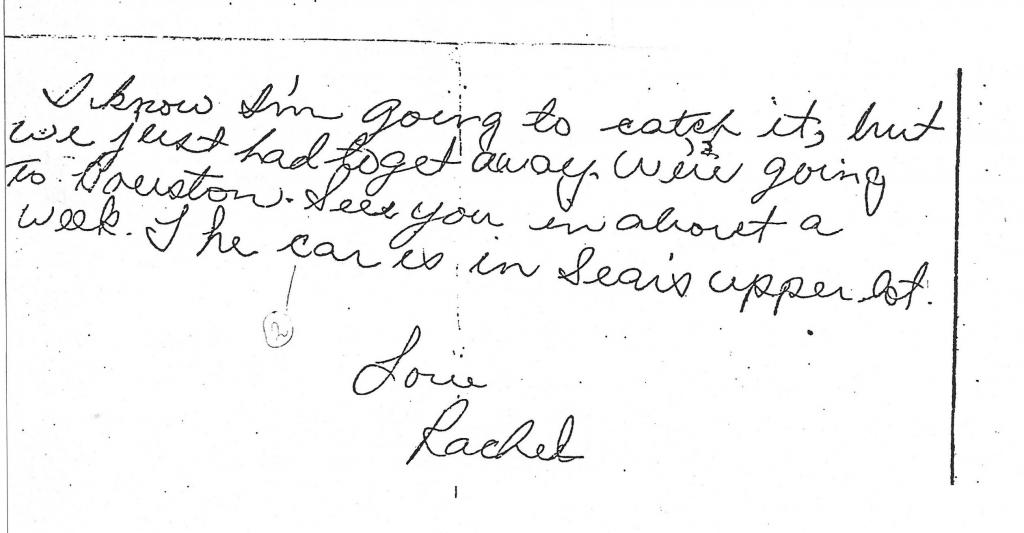 I know I'm going to catch it, but
we just had to get away. We're going
to Houston. See you in about a
week. The car is in Sears upper lot.
(2)
Love
Rachel